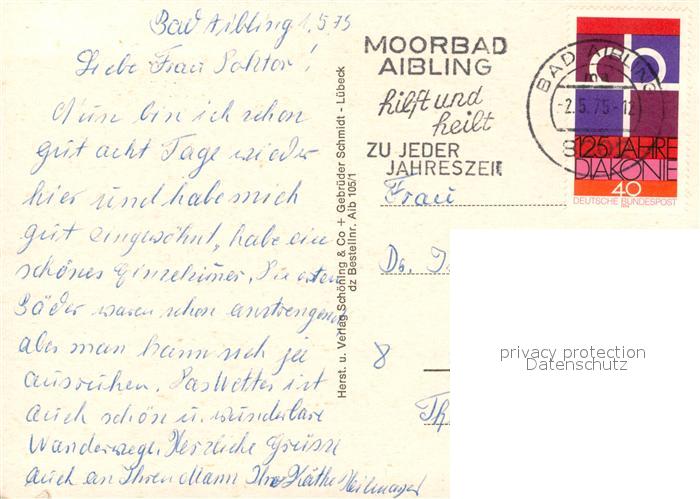 Bad Aibling 1.5.75
Liebe Frau Doktor!
Nun bin ich schon
gut acht Tage wieder
hier und habe mich
gut eingewöhnt, habe ein
schönes Einzelzimer, Die ersten
Bäder waren schon anstrengend
aber man kann sich ja
ausruhen. Das Wetter ist
auch schön u. wunderbare
Wanderwege. Herzliche Grüsse
auch an Ihren Mann Ihre Käthe
Herst. u. Verlag Schöning & Co + Gebrüder Schmidt - Lübeck
dz Bestellnr. Aib 105/1
MOORBAD
AIBLING
hilft und
heilt
ZU JEDER
JAHRESZEIT
BAD AIBLING
-2.5.75-12
8
125 JAHRE
DIAKONIE
40
DEUTSCHE BUNDESPOST
Frau
Dr.
8
privacy protection
Datenschutz